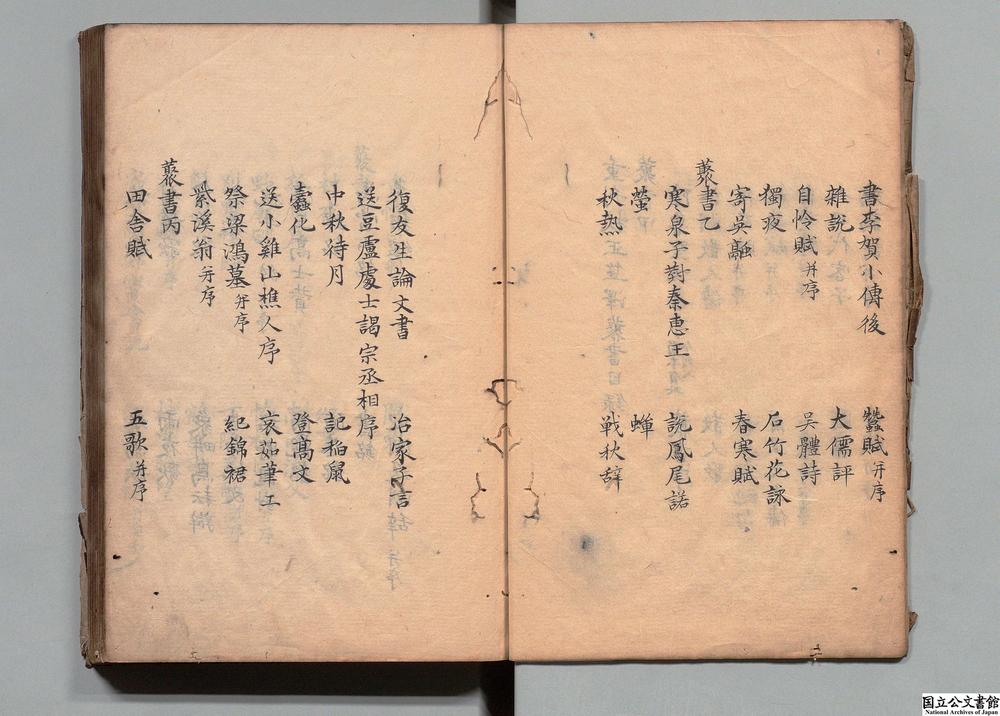 書李賀小傳後 蠶賦并序
雜説 大儒評
自怜賦并序 吳體詩
獨夜 石竹花詠
寄吳融 春寒賦
藂書乙
寒泉子對秦惠王 説鳳尾諾
螢 蟬
秋熱 戦秋辞
復友生論文書 冶家子言
送豆盧處士謁宗丞相序
中秋待月 記稻鼠
蠹化 登髙文
送小雞山樵人序 哀茹筆工
祭梁鴻墓并序 紀錦裙
紫溪翁并序
藂書丙
田舎賦 五歌并序
国立公文書館
National Archives of Japan